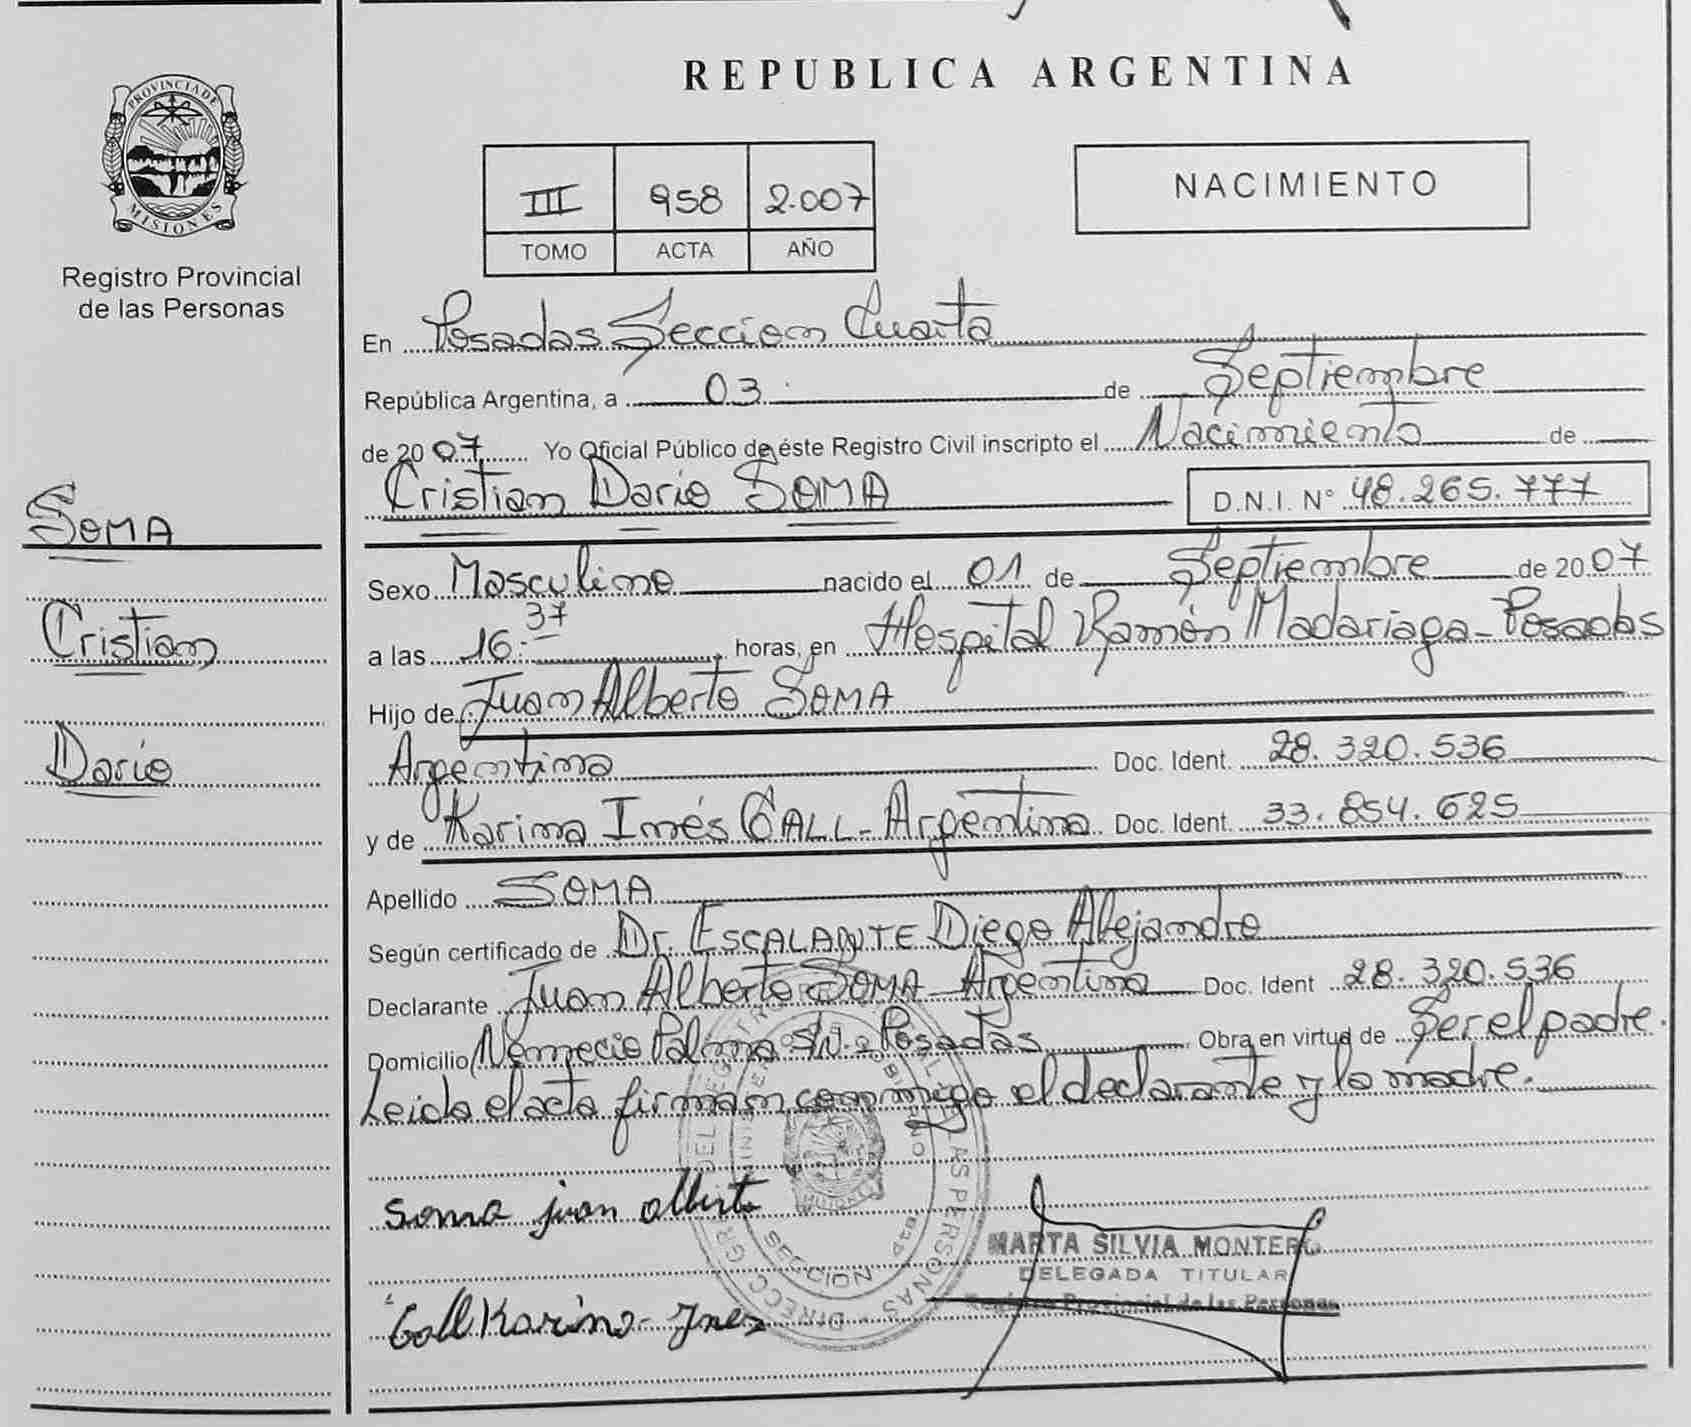 PROVINCIA DE
MISIONES
Registro Provincial
de las Personas
SOMA
Cristian
Dario
REPUBLICA ARGENTINA
III 958 2.007
TOMO ACTA AÑO
NACIMIENTO
En Posadas Sección Cuarta
República Argentina, a 03 de Septiembre
de 2007 Yo Oficial Público de éste Registro Civil inscripto el Nacimiento de
Cristian Dario SOMA D.N.I. N° 48.265.777
Sexo Masculino nacido el 01 de Septiembre de 2007
a las 16:37 horas, en Hospital Ramón Madariaga - Posadas
Hijo de Juan Alberto SOMA
Argentino Doc. Ident. 28.320.536
y de Karina Inés GALL - Argentina Doc. Ident. 33.854.625
Apellido SOMA
Según certificado de Dr. ESCALANTE Diego Alejandro
Declarante Juan Alberto SOMA - Argentino Doc. Ident 28.320.536
Domicilio Nemecio Palma S/N. - Posadas Obra en virtud de Ser el padre.
Leida el acta firman conmigo el declarante y la madre.
Soma juan alberto
MARTA SILVIA MONTERO
DELEGADA TITULAR
Registro Provincial de las Personas
Gall Karina - Ines